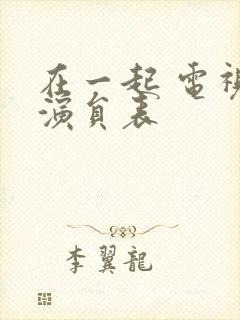 在一起 電視
演員表
李翼龍